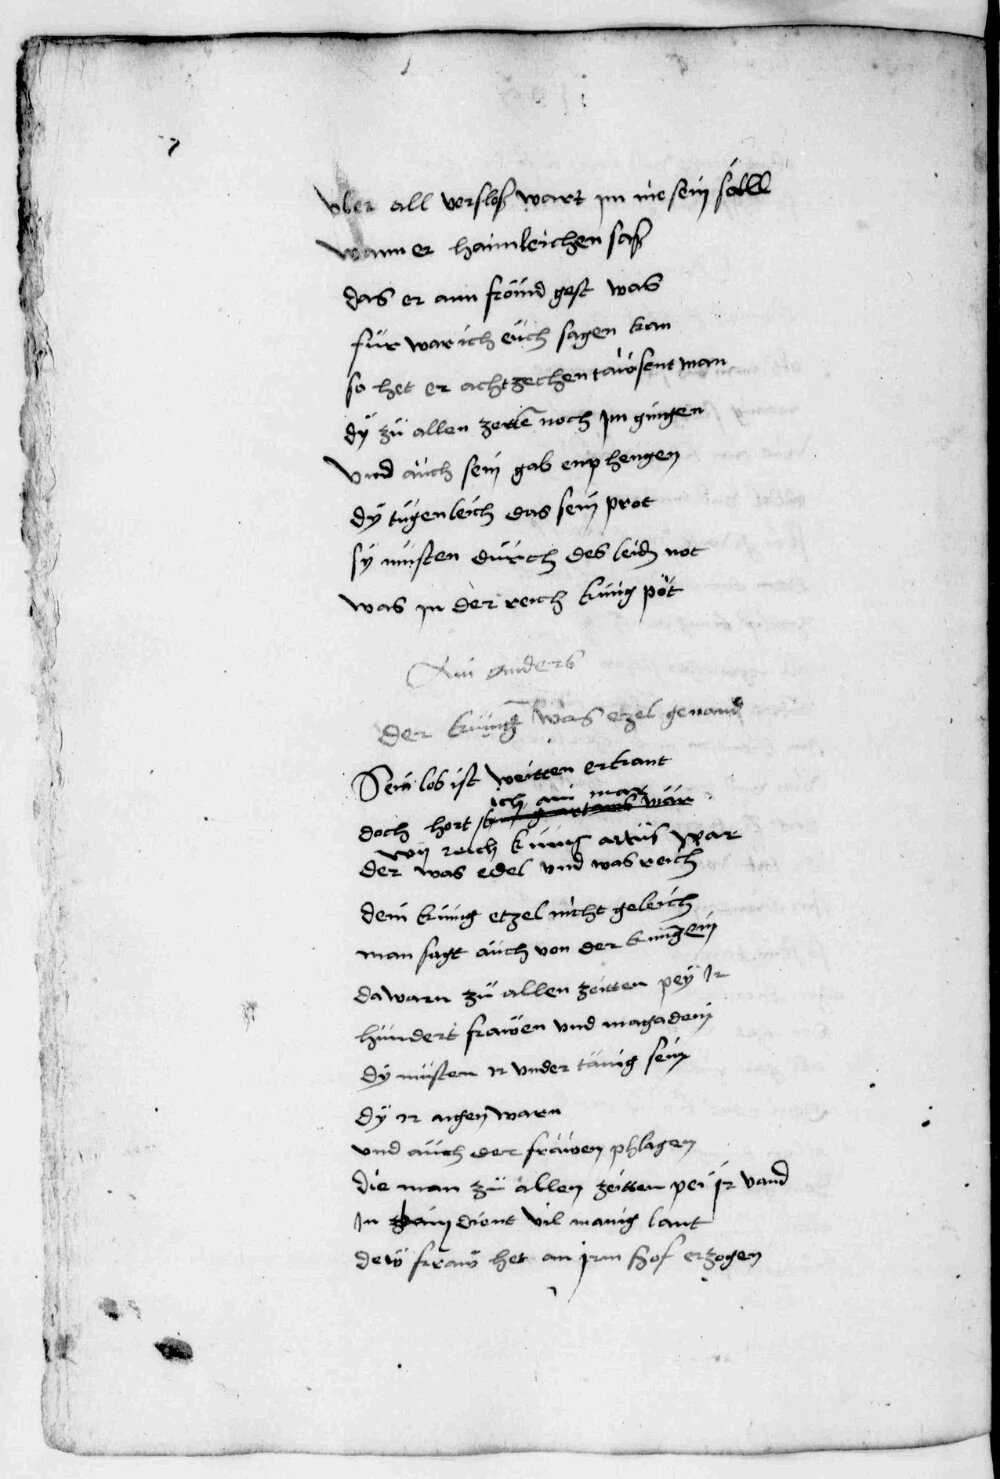 vber all versloß wart im nie sein sall
wann er haimleichen saß
das er ann fröuind gest was
für war ich eüch sagen kan
so het er achtzechen taüsent man
dÿ zü allen zeitē noch im gingen
vnd aüch sein gab enphengen
dÿ tugenleich das sein prot
sÿ müsten dürch des leidn not
was in der reich künig pöt
Ain anders
der künig was etzel genand
Sein lob ist weitten erkant
doch hort ich ain mar
wÿ reich künig artüs war
der was edel vnd was reich
dem künig etzel nicht geleich
man sagt aüch von der künigein
da warn zü allen zeitten peÿ Ir
hündert frawen vnd magadein
dÿ müsten ir vnder tänig sein
dÿ ir aigen warn
vnd aüch der fraüen phlagen
die man zü allen zeitten pei ir vand
In dient vil manig lant
dew fraw het an irm hof erzogen